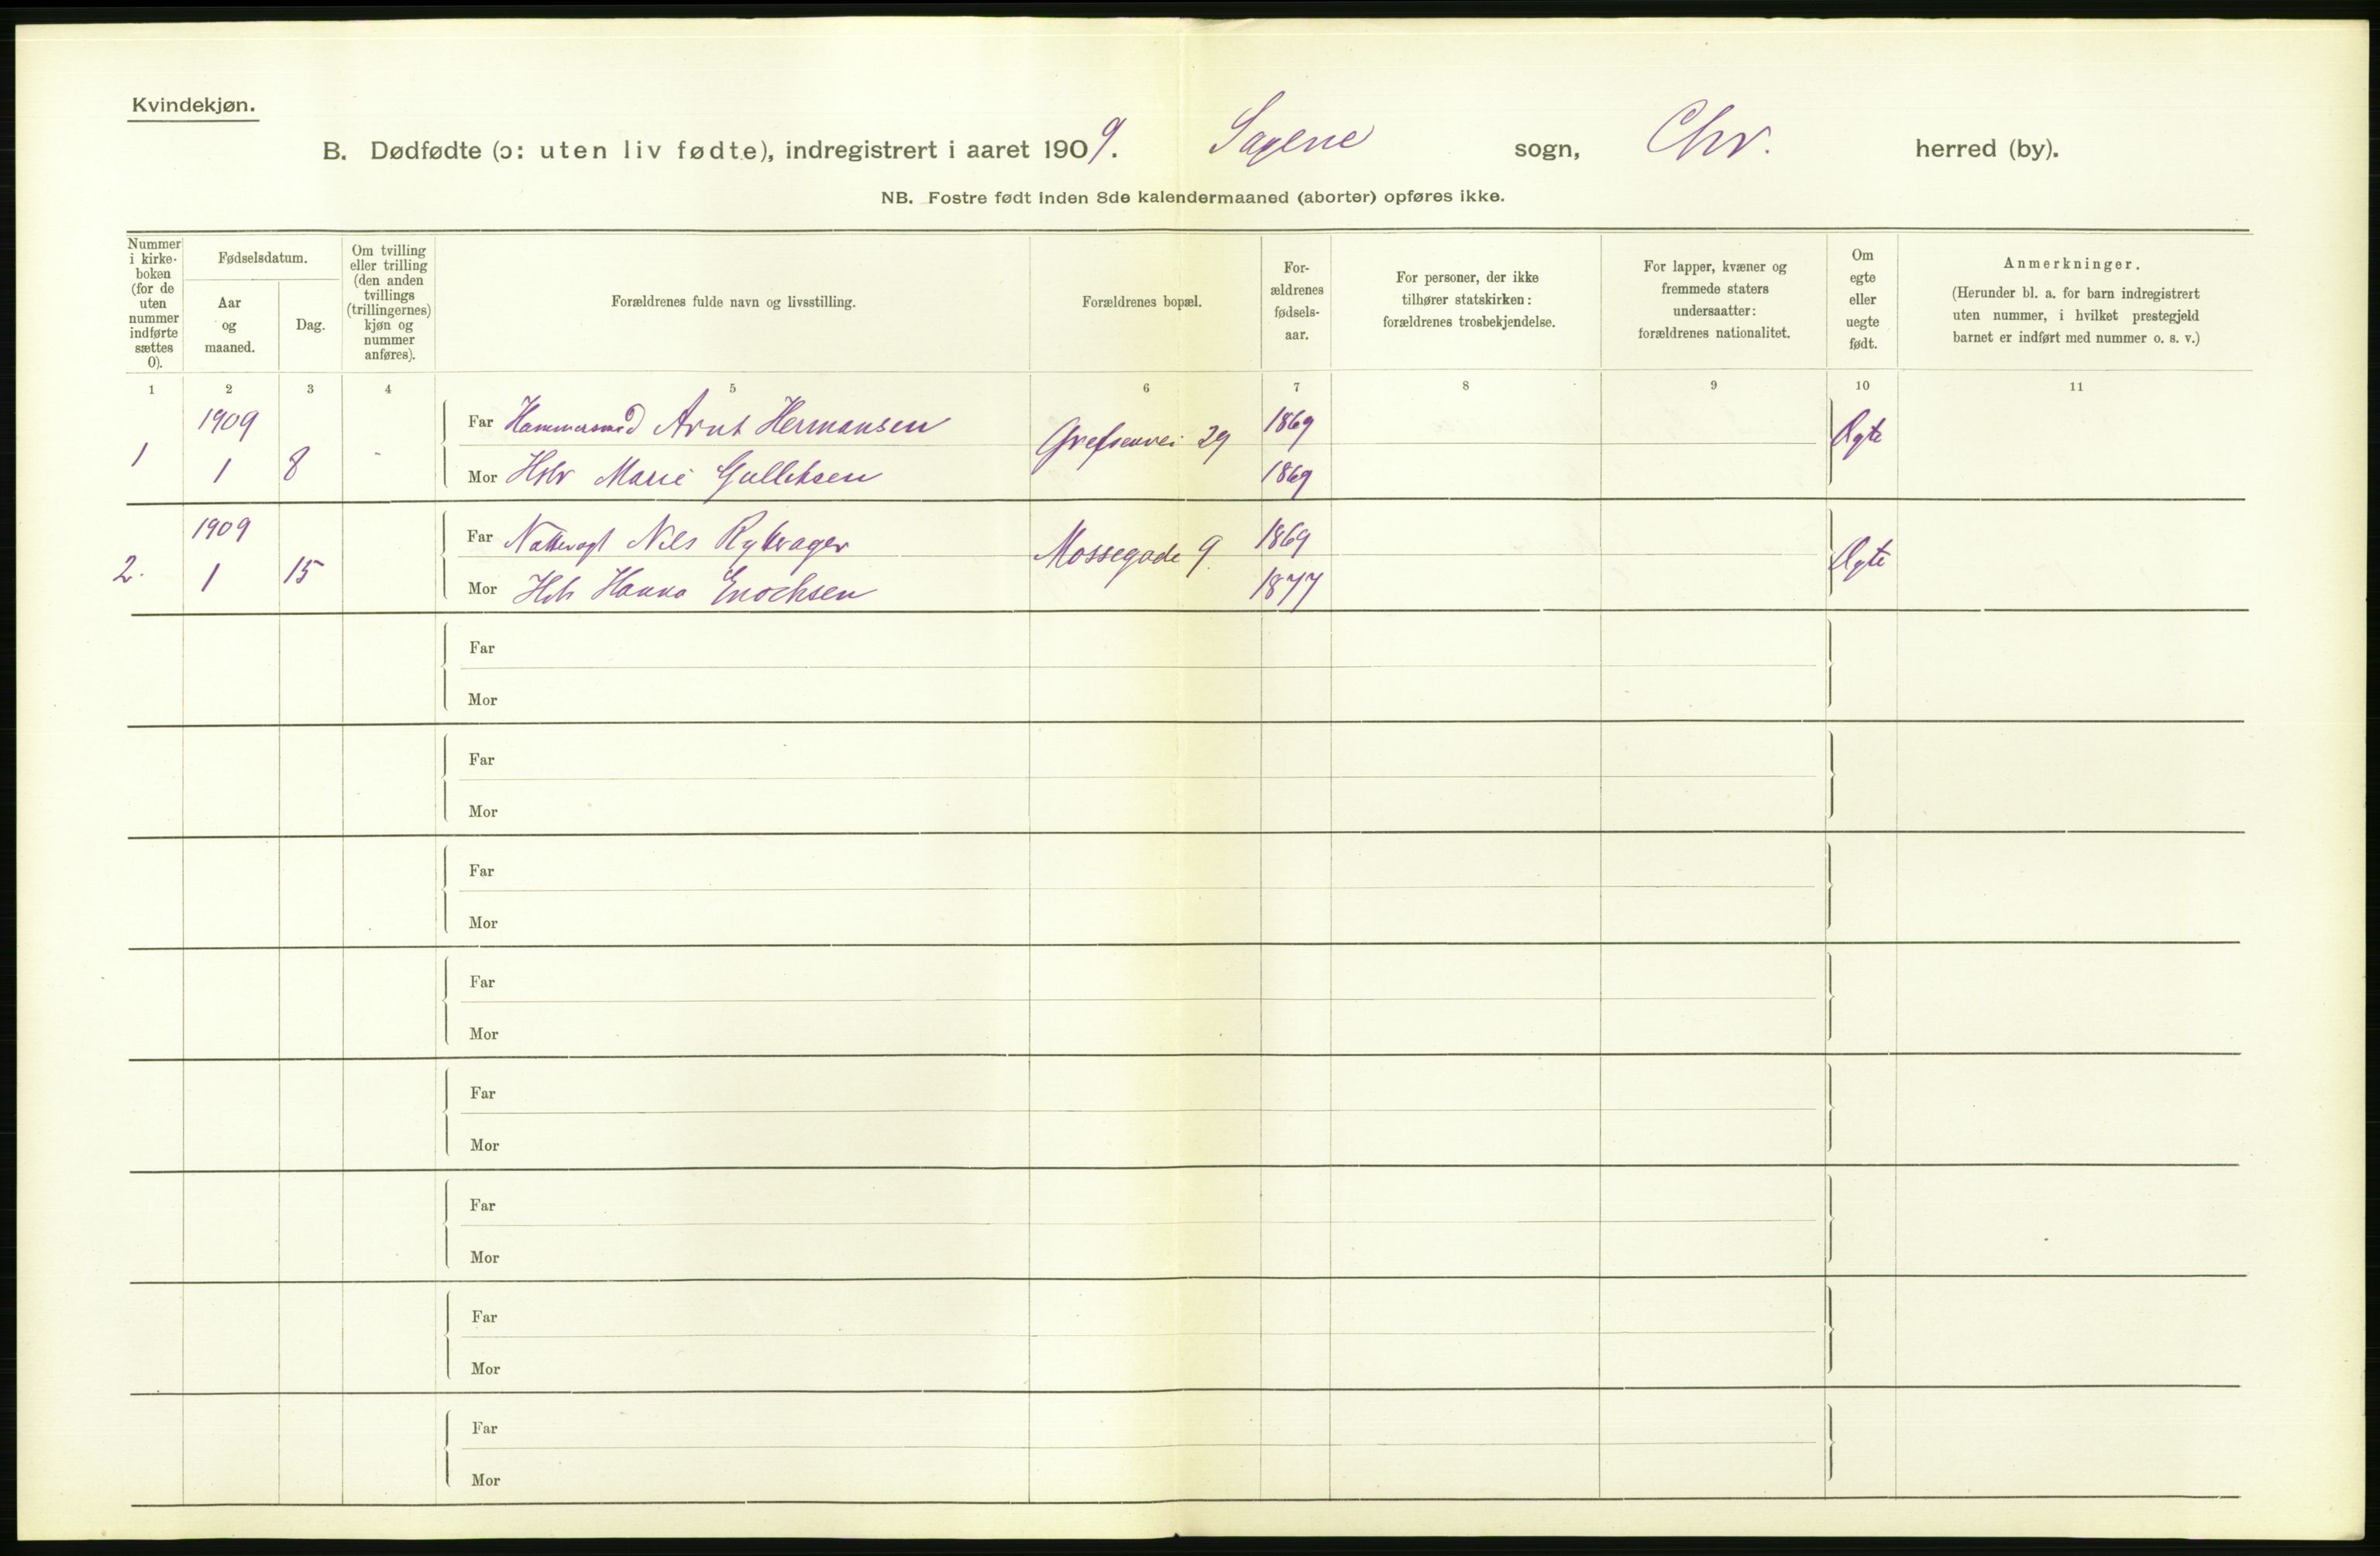 Kvindekjøn.
B. Dødfødte (ɔ: uten liv fødte), indregistrert i aaret 1909. Sagene sogn, Chr. herred (by).
NB. Fostre født inden 8de kalendermaaned (aborter) opføres ikke.
Nummer
i kirke-
boken
(for de
uten
nummer
indførte
sættes
0).
Fødselsdatum.
Aar
og
maaned.
Dag.
Om tvilling
eller trilling
(den anden
tvillings
(trillingernes)
kjøn og
nummer
anføres).
Forældrenes fulde navn og livsstilling.
Forældrenes bopæl.
For-
ældrenes
fødsels-
aar.
For personer, der ikke
tilhører statskirken:
forældrenes trosbekjendelse.
For lapper, kvæner og
fremmede staters
undersaatter:
forældrenes nationalitet.
Om
egte
eller
uegte
født.
Anmerkninger.
(Herunder bl. a. for barn indregistrert
uten nummer, i hvilket prestegjeld
barnet er indført med nummer o. s. v.)
1 2 3 4 5 6 7 8 9 10 11
1909 Far Hammersmed Arnt Hermansen Grefsenvei 29 1869 Ægte
1 1 8 - Mor Marie Gulliksen 1869
1909 Far Nattevagt Nils Rytterager Mossegade 9. 1869 Ægte
2. 1 15 Mor Hanna Enochsen 1877
Far
Mor
Far
Mor
Far
Mor
Far
Mor
Far
Mor
Far
Mor
Far
Mor
Far
Mor